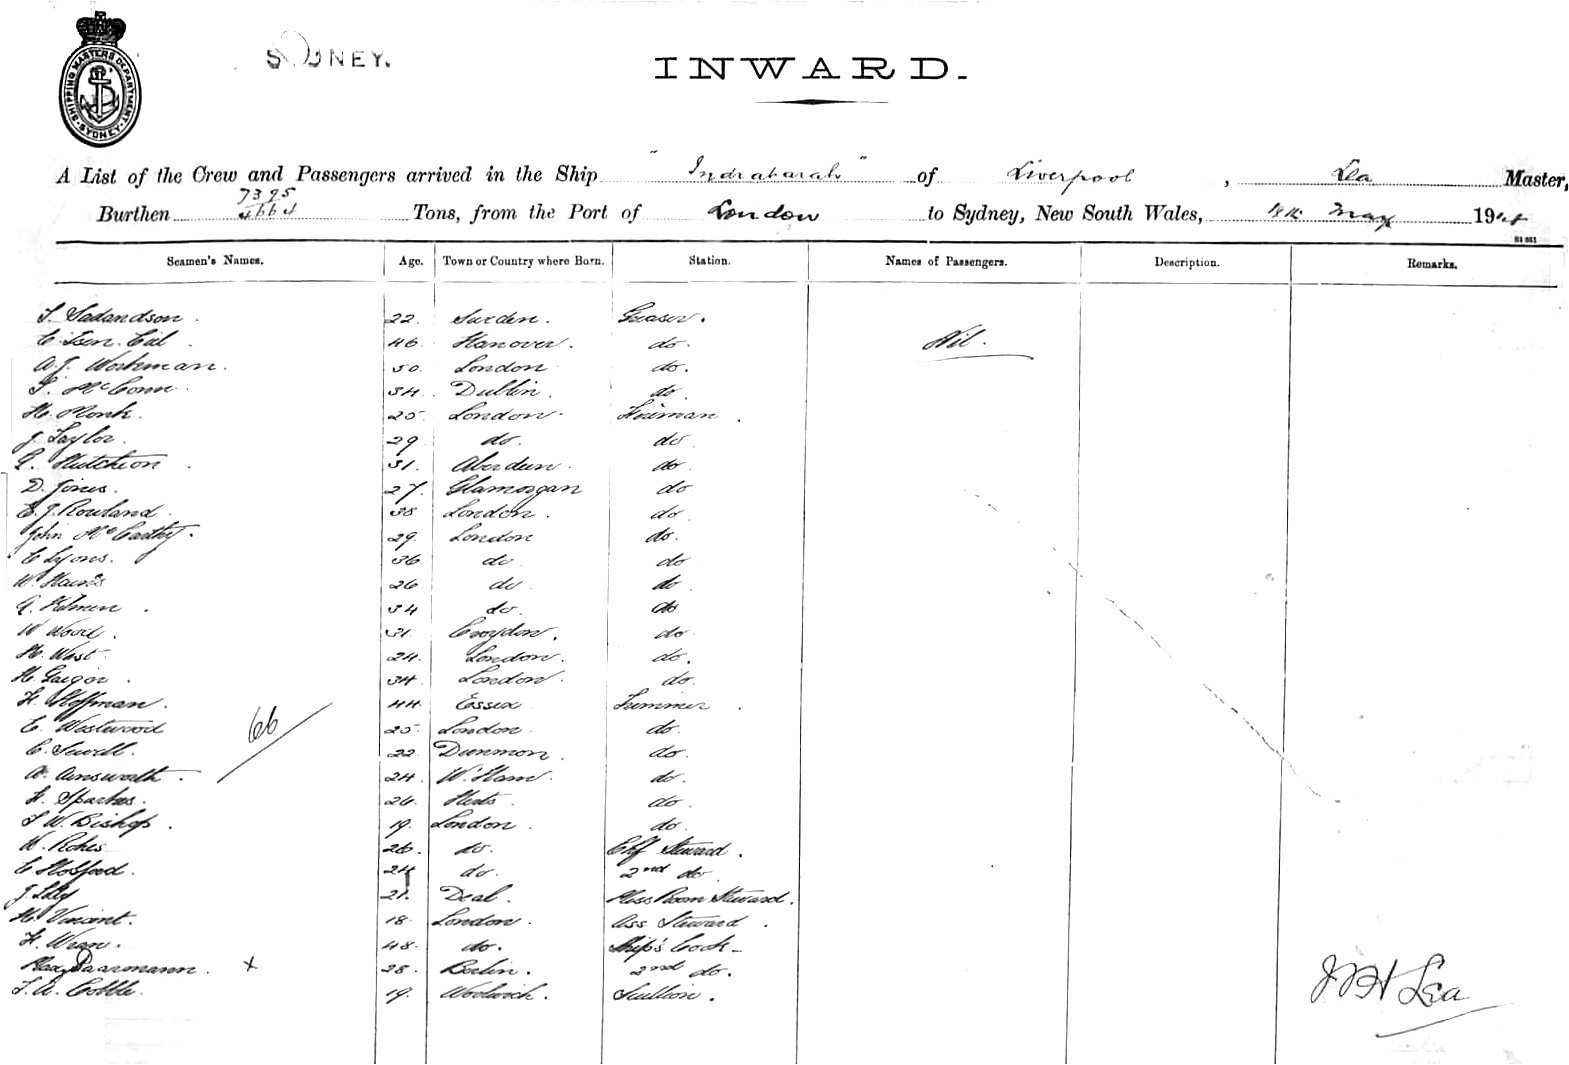 SHIPPING MASTERS DEPARTMENT SYDNEY
SYDNEY.
INWARD.
A List of the Crew and Passengers arrived in the Ship "Indrabarah" of Liverpool, Lea Master,
7395
Burthen 4664 Tons, from the Port of London to Sydney, New South Wales, May 19
Seamen's Names. Age. Town or Country where Born. Station. Names of Passengers. Description. Remarks.
22. Sweden. Greaser.
46. Hanover. do. Nil.
A. J. Workman. 50. London do.
McConn. 34. Dublin. do.
H. Monk. 25. London. Fireman.
J. Taylor. 29 do. do
Hutcheon. 31. Aberdeen. do
D. Jones. 27. Glamorgan do
E. J. Rowland. 38 London. do
John McCarthy. 29. London do.
C Lyons. 36. do do
W. Harris 26 do do
34 do. do
W Wood. 31 Croydon. do
H. West. 24. London. do.
H. 34. London. do.
F. Hoffman. 44. Essex Trimmer.
E. Westwood 25. London do.
66
C. Sewell. 22. Dunmon. do.
A. Ainsworth. 24. W. Ham. do.
F. Sparkes. 26. Herts. do.
W. Bishop. 19. London. do.
W. 26. do. Chf Steward.
C 24 do. 2nd do.
J. 21. Deal. Mess Room Steward.
H. Vincent. 18. London. Ass Steward.
F. Wren. 48. do. Ship's Cook
Max Paarmann. x 28. Berlin. 2nd do.
A. Cobble. 19. Woolwich. Scullion.
J H Lea